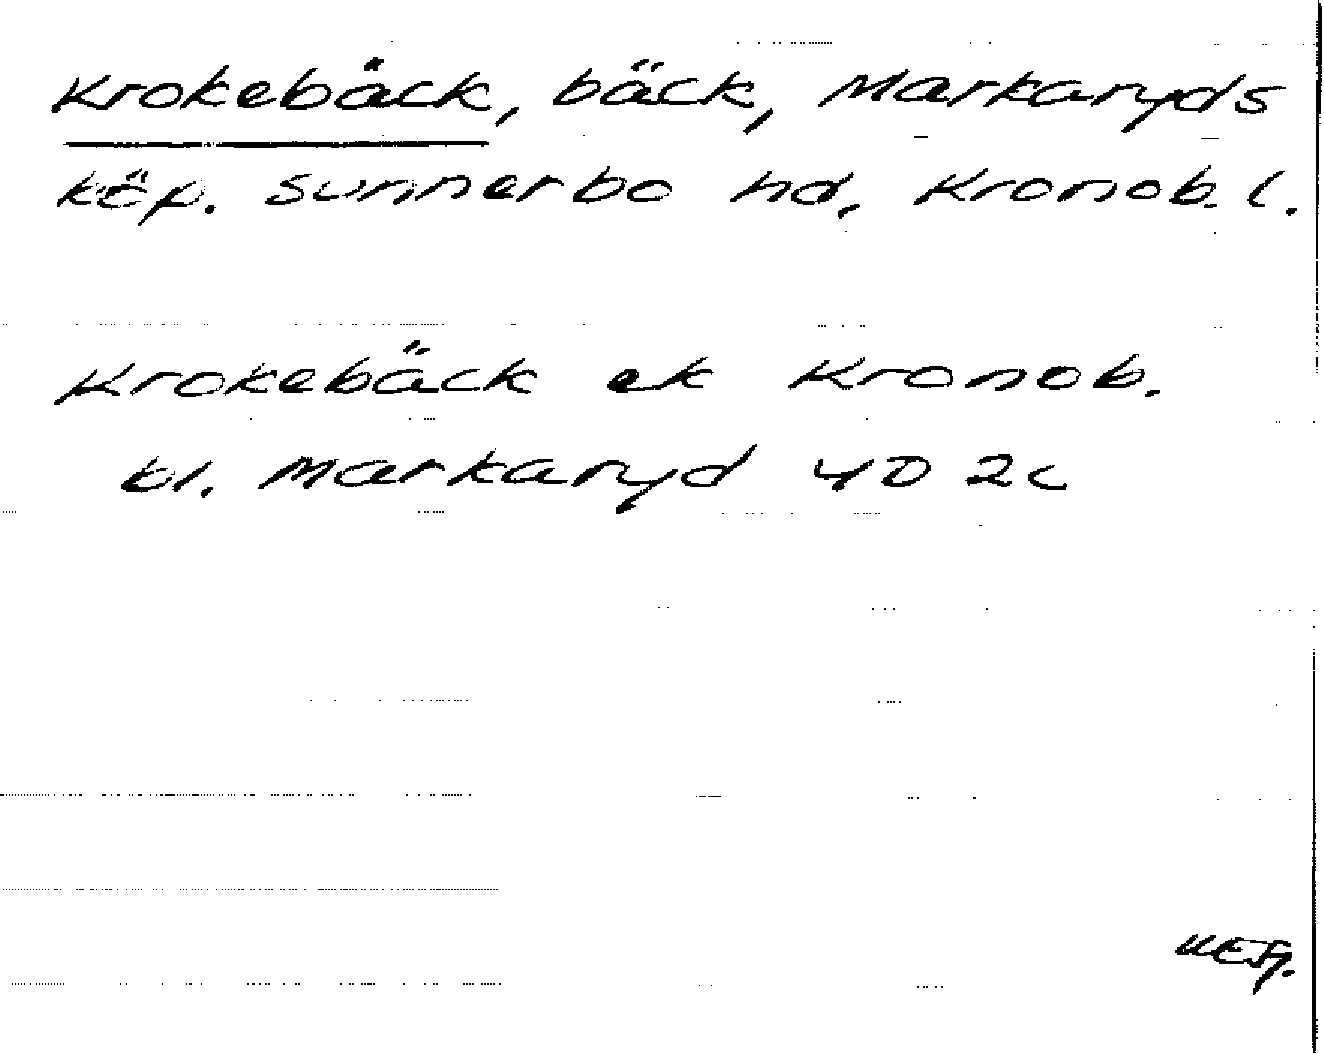 Krokebäck, bäck, Markaryds
köp. Sunnerbo hd, Kronob. l.
Krokebäck ek Kronob.
bl. Markaryd 4D 2c